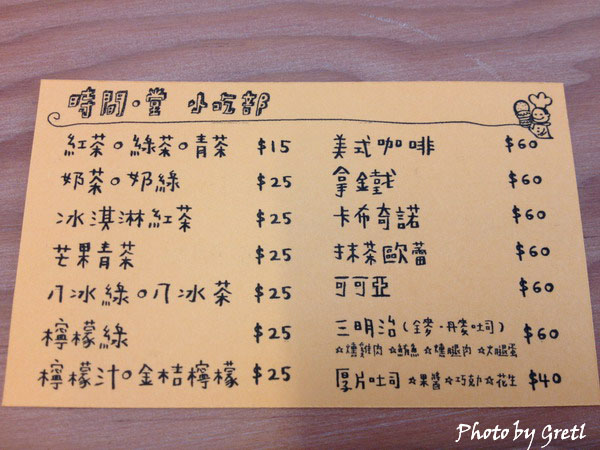 時間・堂 小吃部
紅茶。綠茶。青茶 $15
奶茶。奶綠 $25
冰淇淋紅茶 $25
芒果青茶 $25
八冰綠。八冰茶 $25
檸檬綠 $25
檸檬汁。金桔檸檬 $25
美式咖啡 $60
拿鐵 $60
卡布奇諾 $60
抹茶歐蕾 $60
可可亞 $60
三明治(全麥・丹麥吐司) $60
☆燻雞肉 ☆鮪魚 ☆燻腿肉 ☆火腿蛋
厚片吐司 ☆果醬 ☆巧克力 ☆花生 $40
Photo by Gretl